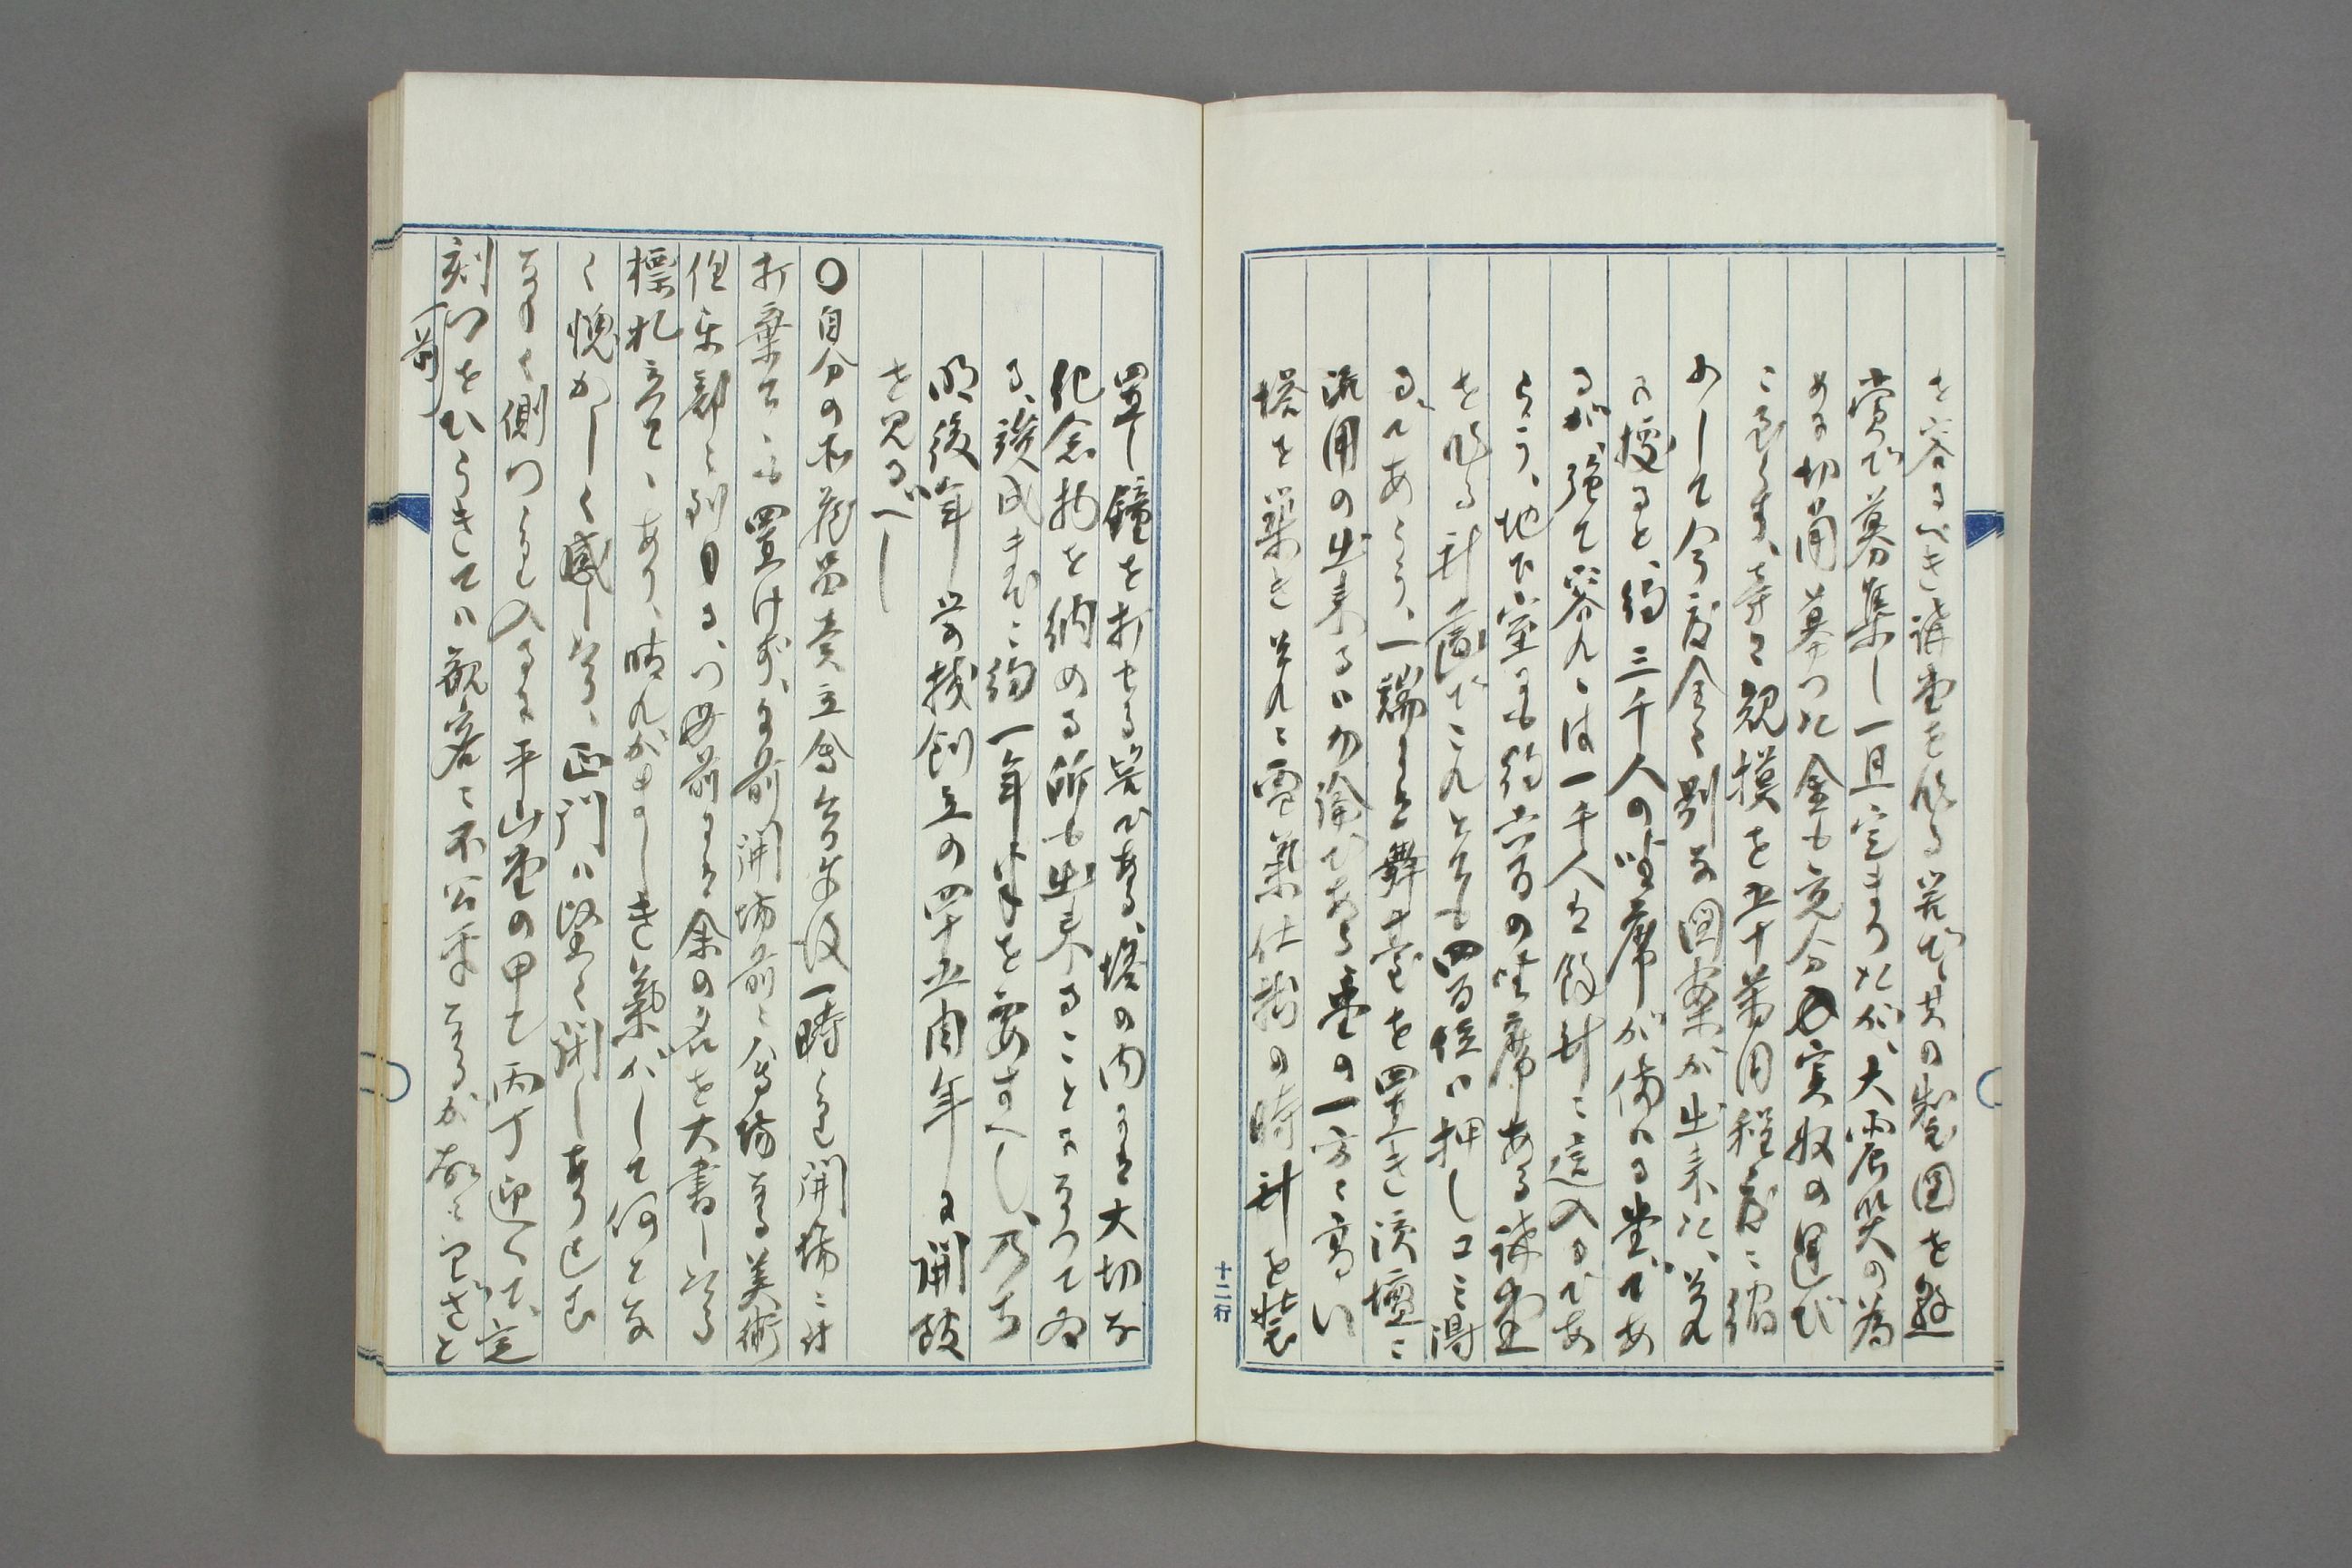 を容るべき講堂を作る筈で其の製図を懸
賞で募集し一旦定まつたが、大震災の為
めに切角募つた金も充分に実収の運び
に至らず、寺に規模を五十万円程度に縮
めして今度全く別な図案が出来た、それ
に据ると、約三千人の坐席が備はる堂であ
るが、強て容れゝは一千人は餘計に這入るであ
らう、地下室にも約六百の坐席ある講堂
を作る計画でこれとても四百位は押し込み得
るであらう、一端には舞臺を置き演壇に
流用の出来るは勿論である、堂の一方に高い
塔を築きそれに電気仕掛の時計を装
置し鐘を打せる筈である、塔の内には大切な
紀念物を納める所も出来ることになつてゐ
る、竣成までに約一年半を要すべし、乃ち
明後年学校創立の四十五周年に開鼓
を見るべし
〇自分の所蔵品売立会今年後一時より開場に付
打棄てゝも置けず、午前開場前に会場なる美術
倶楽部に到りたる、つ毎前には余の名を大書したる
標札立てゝあり、晴れがましき気がして何とな
く愧かしく感したり、正門は堅く閉しありたれ
ばとて側つより入るに平山堂の甲乙丙丁迎へて、定
刻つをひらきては観客に不公平なるが故にわざと
(前)
十二行